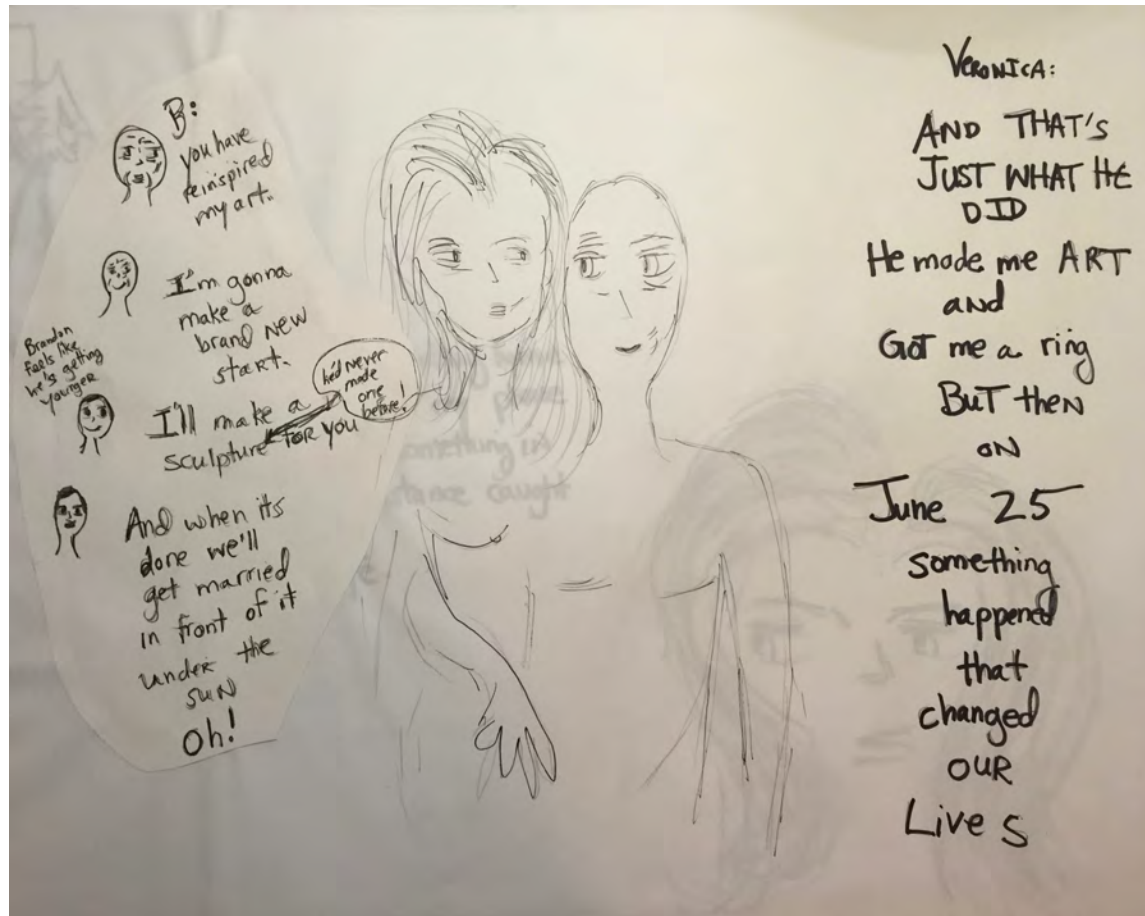 B:
you have
reinspired
my art.
I'm gonna
make a
brand new
start.
Brandon
feels like
he's getting
younger
I'll make a
sculpture for you
he'd never
made
one
before!
And when its
done we'll
get married
in front of it
under the
sun
Oh!
something in
caught
VERONICA:
AND THAT'S
JUST WHAT HE
DID
He made me ART
and
Got me a ring
BUT then
ON
June 25
something
happened
that
changed
OUR
Lives